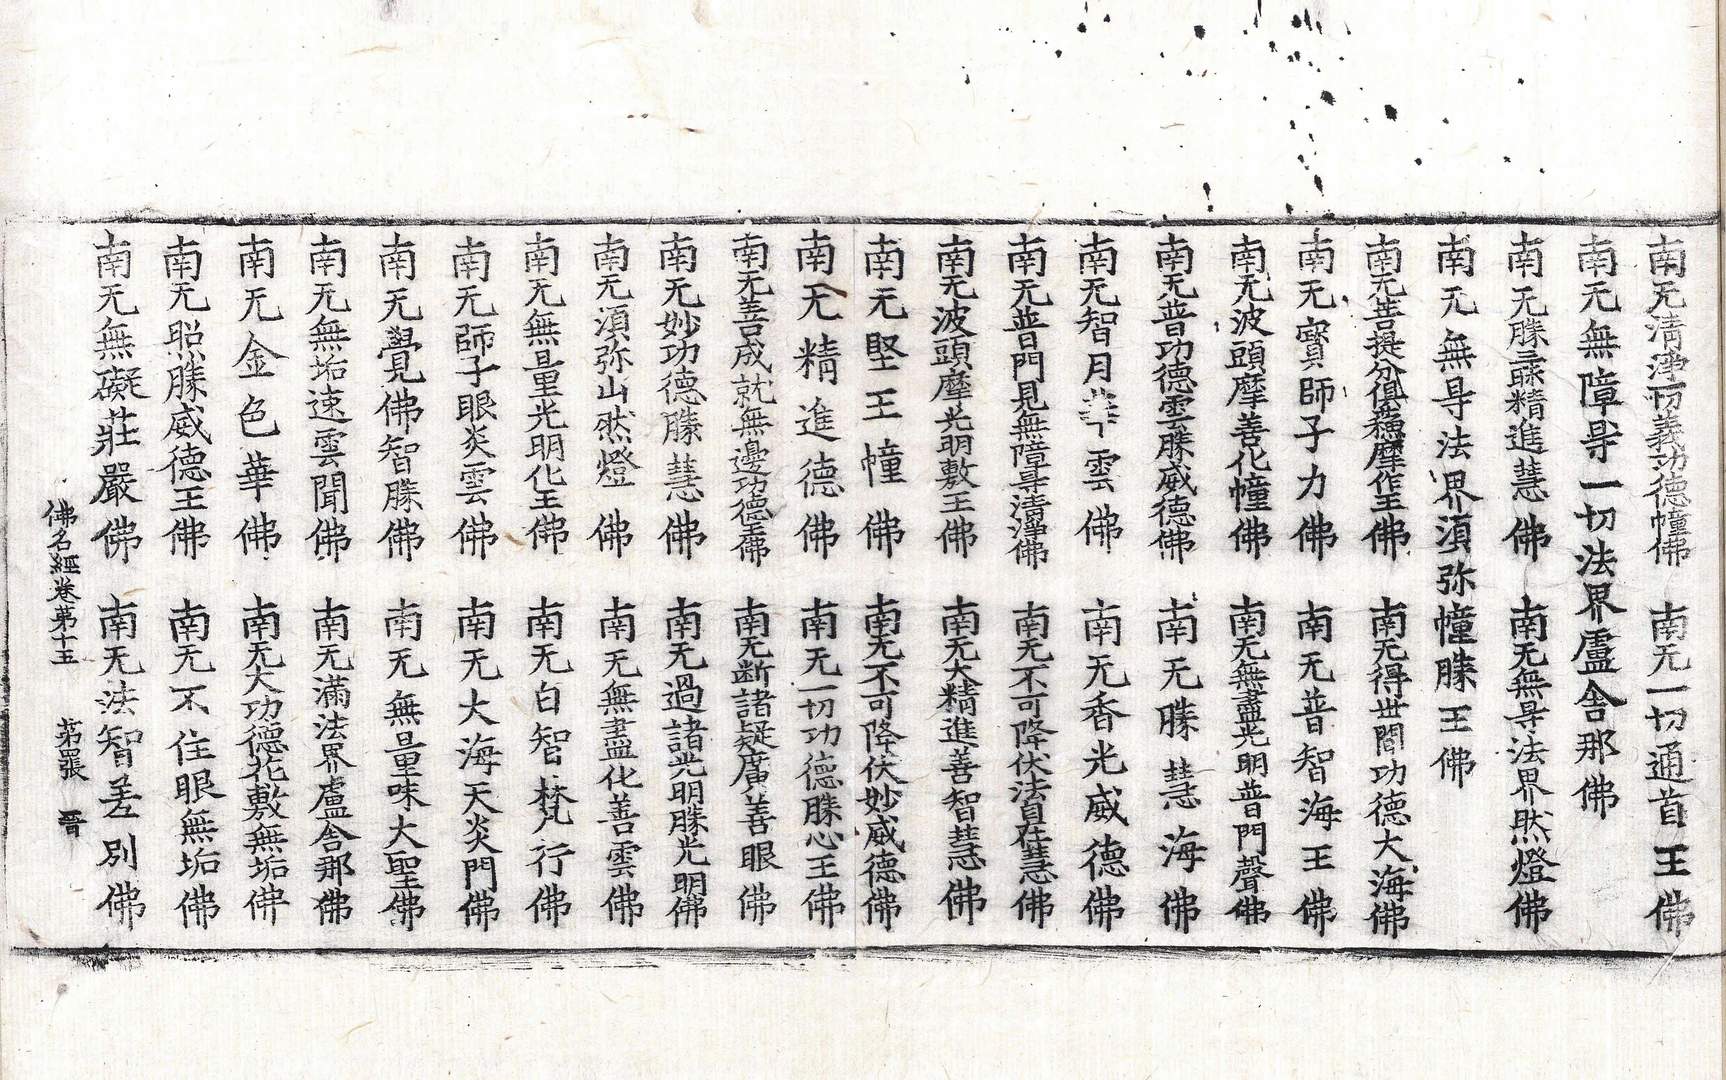 南无清淨一切義功德幢佛 南无一切通首王佛
南无無障㝵一切法界盧舍那佛
南无勝三昧精進慧佛 南无無㝵法界然燈佛
南无無㝵法界湏弥幢勝王佛
南无菩提分俱蘓摩作王佛 南无得世間功德大海佛
南无寶師子力佛 南无普智海王佛
南无波頭摩善化幢佛 南无無盡光明普門聲佛
南无普功德雲勝威德佛 南无勝慧海佛
南无智月華雲佛 南无香光威德佛
南无普門見無障㝵清淨佛 南无不可降伏法自在慧佛
南无波頭摩光明敷王佛 南无大精進善智慧佛
南无堅王幢佛 南无不可降伏妙威德佛
南无精進德佛 南无一切功德勝心王佛
南无善成就無邊功德王佛 南无断諸疑廣善眼佛
南无妙功德勝慧佛 南无過諸光明勝光明佛
南无湏弥山然燈佛 南无無盡化善雲佛
南无無量光明化王佛 南无白智梵行佛
南无師子眼炎雲佛 南无大海天炎門佛
南无覺佛智勝佛 南无無量味大聖佛
南无無垢速雲聞佛 南无滿法界盧舍那佛
南无金色華佛 南无大功德花敷無垢佛
南无照勝威德王佛 南无不住眼無垢佛
南无無礙莊嚴佛 南无法智差別佛
佛名經卷第十五 第 張 晋